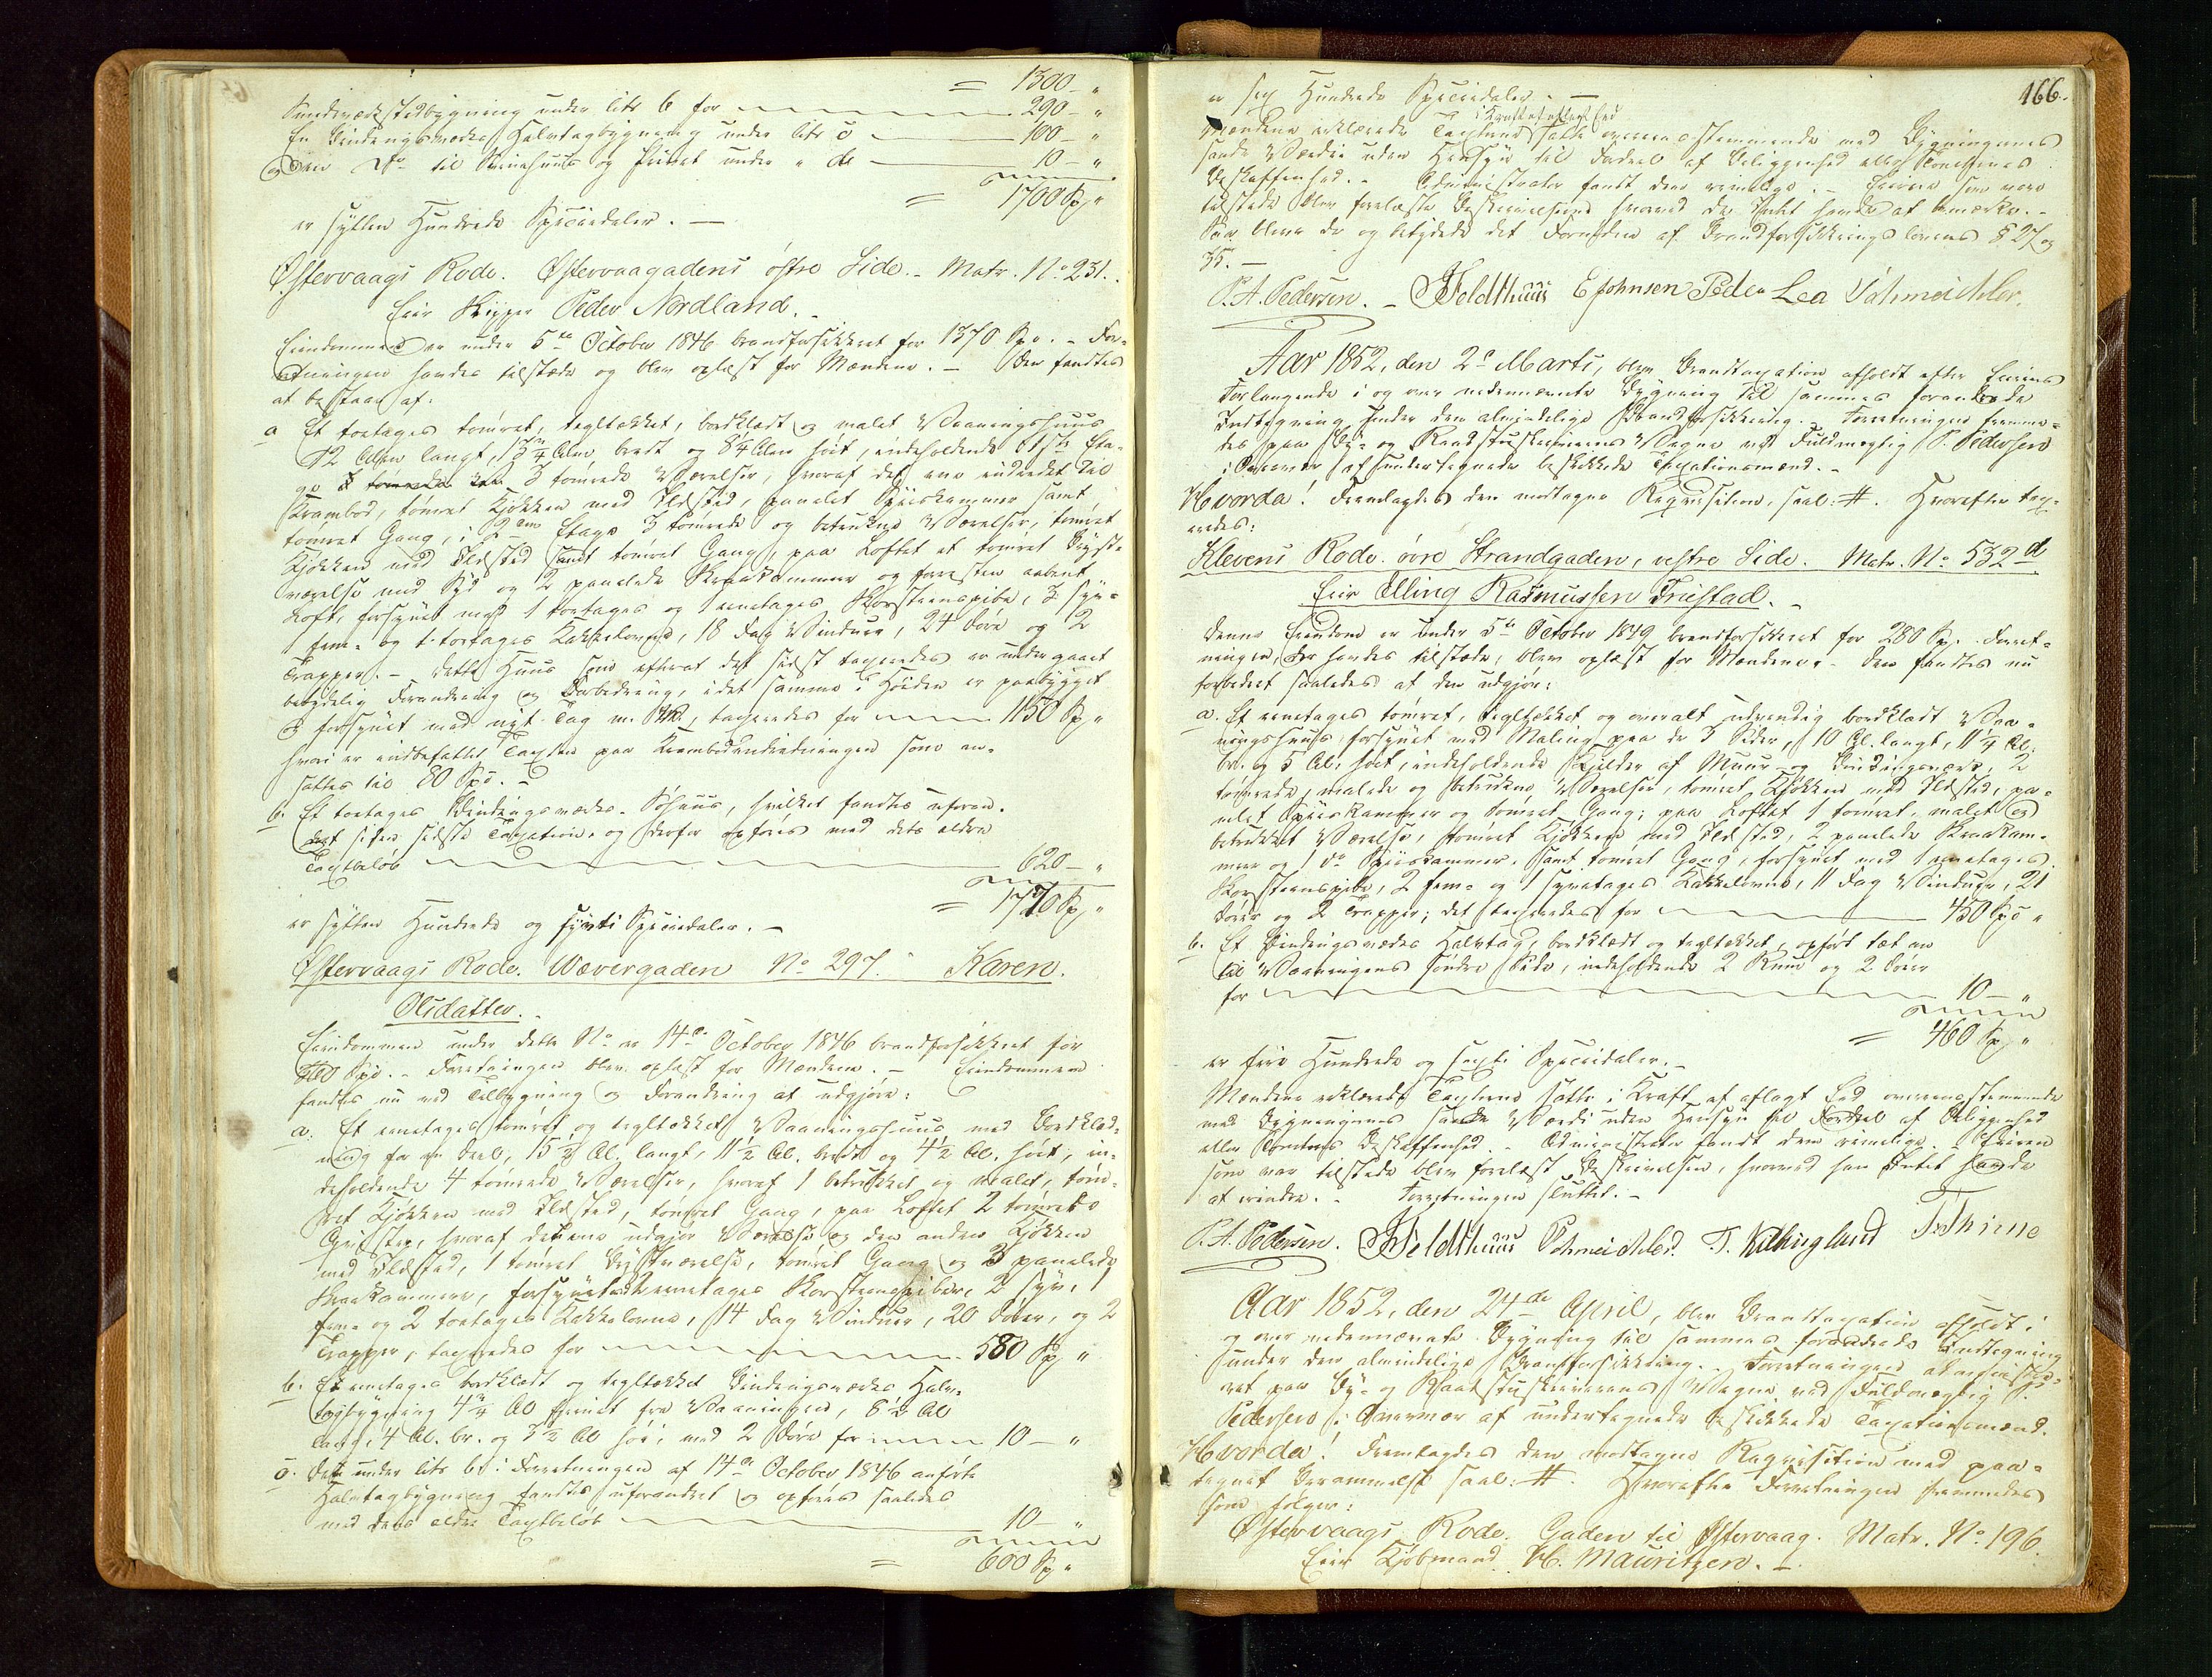 = 1300 - "
Bindværksstuebygning under litr b for 290 - "
En Bindingsværkes Halvtagbygning under litr c 100 - "
og en Do til Svinehuus og Privet under " d 10 - "
= 1700 Sp "
er sytten Hundrede Speciedaler. —
Østervaags Rode. Østervaagadens østre Side. - Matr. No 231.
Eier Skipper Peder Nordland. -
Eiendommen er under 5te October 1846 brandforsikkret for 1370 Spd. - For-
retningen havdes tilstæde og blev oplæst for Mændene. — Den fandtes
at bestaae af:
a Et toetages tømret, tegltækket, bordklædt og malet Vaaningshuus
12 Alen langt, 13 3/4 Alen bredt og 8 1/4 Alen høit, indeholdende i 1ste Eta-
ge 3 tømrede Værelser, hvoraf det ene indredet til
Krambod, tømret Kjøkken med Ildsted, panelet Spiiskammer samt
tømret Gang, i 2den Etage 3 tømrede og betrukne Værelser, tømret
Kjøkken med Ildsted samt tømret Gang, paa Loftet et tømret Bryst-
værelse mod Syd og 2 panelede Skraakammere og forresten aabent
Loft, forsynet med 1 toetages og 1 eenetages Skorsteenspibe, 3 syv-
1 fem- og 1 toetages Kakkelovne, 18 Fag Vinduer, 24 Døre og 2
Trapper. - Dette Huus som efterat det sidst taxeredes er undergaaet
betydelig Forandring og Forbedring, idet samme i Høiden er paabygget
og forsynet med nyt Tag m. M., taxeredes for 1150 Sp "
hvori er indbefattet Taxten paa Krambodindretningen som an-
sattes til 80 Spd. -
b. Et toetages Bindingsværkes Søhuus, hvilket fandtes uforan-
dret siden sidste Taxation og derfor opføres med dets ældre
Taxtbeløb 620 - "
= 1770 Sp "
er sytten Hundrede og syvti Speciedaler. —
Østervaags Rode. Wævergaden No 297. Karen
Olsdatter. -
Eiendommen under dette No er 14de October 1846 brandforsikkret for
Spd. - Forretningen blev oplæst for Mændene. - Eiendommen
fandtes nu ved Tilbygning og Forandring at udgjøre:
a. Et eenetages tømret og tegltækket Vaaningshuus med Bordklæd-
ning for en Deel, 15 1/2 Al. langt, 11 1/2 Al. bredt og 4 1/2 Al. høit, in-
deholdende 4 tømrede Værelser, hvoraf 1 betrukket og malet, tøm-
ret Kjøkken med Ildsted, tømret Gang, paa Loftet 2 tømrede
Qvister, hvoraf den ene udgjør Værelse og den anden Kjøkken
med Ildsted, 1 tømret Brystværelse, tømret Gang og 3 panelede
Skraakammere, forsynet med 2 eenetages Skorsteenspiber, 2 syv, 1
fem- og 2 toetages Kakkelovne, 14 Fag Vinduer, 20 Døre, og 2
Trapper, taxeredes for 580 Sp "
b. Et eenetages bordklædt og tegltækket Bindingsværkes Halv-
tagbygning 4 3/4 Al fjernet fra Vaaningen, 8 1/2 Al
lang, 4 Al. br. og 3 1/2 Al høi, med 2 Døre for 10 - "
c. Den under litr b i Forretningen af 14de October 1846 anførte
Halvtagbygning fandtes uforandret og opføres saaledes
med dens ældre Taxtbeløb 10 - "
= 600 Sp "
166.
er sex Hundrede Speciedaler. —
i Kraft af aflagt Eed
Mændene erklærede Taxterne satte overeensstemmende med Bygningernes
sande Værdie uden Hensyn til Fordeel af Beliggenhed eller Tomternes
Beskaffenhed. - Administrator fandt den rimelige. - Eierne som vare
tilstede blev forelæste Beskrivelserne hvorved de Intet havde at bemærke. -
Saa bleve de og betydede det Fornødne af Brandforsikkringslovens § 27 og
35. —
P. A. Pedersen. - JFeldthuus E Johnsen Peder Lea Schmeichler.
Aar 1852, den 2de Marts, blev Brandtaxation afholdt efter Eierens
Forlangende i og over nedennævnte Bygning til sammes forandrede
Indtegning under den almindelige Brandforsikkring. Forretningen fremme-
des paa By- og Raadstueskriverens Vegne ved Fuldmægtig P. Pedersen
i Overvær af undertegnede beskikkede Taxationsmænd. -
Hvorda! Fremlagdes den modtagne Reqvisition, saal: #. Hvorefter tax-
eredes:
Klevens Rode. øvre Strandgaden, vestre Side. Matr. No 532 d
Eier Elling Rasmussen Friestad. -
Denne Eiendom er under 5te October 1849 brandforsikkret for 280 Sp. Forret-
ningen, der havdes tilstæde, blev oplæst for Mændene. - Den fandtes nu
forbedret saaledes at den udgjør:
a. Et eenetages tømret, tegltækket og overalt udvendig bordklædt Vaa-
ningshuus forsynet med Maling paa de 3 Sider, 10 Al. langt, 11 1/4 Al.
br. og 5 Al. høit, indeholdende Kjelder af Muur- og Bindingsværk, 2
tømrede, malede og betrukne Værelser, tømret Kjøkken med Ildsted, pa-
nelet Spiiskammer og tømret Gang; paa Loftet 1 tømret, malet og
betrukket Værelse, tømret Kjøkken med Ildsted, 2 panelede Skraakam-
mere og 1 do Spiiskammer. samt tømret Gang, forsynet med 1 eenetages
Skorsteenspibe, 2 fem- og 1 syvetages Kakkelovne, 11 Fag Vinduer, 21
Døre og 2 Trapper; det taxeredes for 450 Spd "
b. Et Bindingsværkes Halvtag, bordklædt og tegltækket, opført tæt an
til Vaaningens søndre Side, indeholdende 2 Rum og 2 Døre
for 10 - "
= 460 Sp "
er fire Hundrede og sexti Speciedaler. -
Mændene erklærede Taxterne satte i Kraft af aflagt Eed overeensstemmende
med Bygningernes sande Værdi uden Hensyn til Fordeel af Beliggenhed
eller Tomtens Beskaffenhed. - Administrator fandt dem rimelige. Eieren
som var tilstede blev forelæst Beskrivelsen, hvorved han Intet havde
at erindre. - Forretningen sluttet. -
P. A. Pedersen. JFeldthuus Schmeichler. T. Kilhingland T. Thime
Aar 1852, den 24de April, blev Brandtaxation afholdt i
og over nedennævnte Bygning til sammes forandrede Indtegning
under den almindelige Brandforsikkring. - Forretningen administre-
ret paa By- og Raadstueskriverens Vegne ved Fuldmægtig P.
Pedersen i Overvær af undertegnede beskikkede Taxationsmænd.
Hvorda! Fremlagdes den modtagne Reqvisition med paa-
tegnet Berammelse saal: #. Hvorefter Forretningen fremmedes
som følger:
Østervaags Rode. Gaden til Østervaag. Matr. No 196.
Eier Kjøbmand H. Mauritzen. -